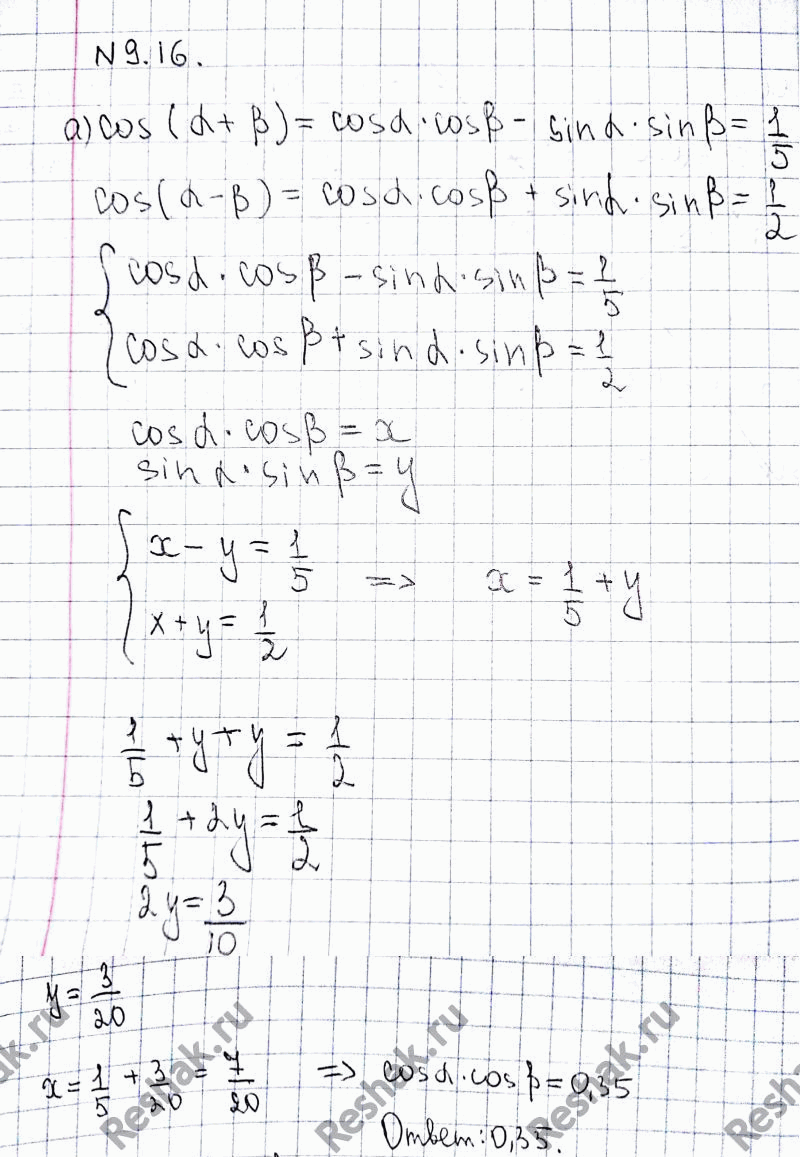 N 9.16.
а) cos(α+β) = cosα·cosβ − sinα·sinβ = 1/5
cos(α−β) = cosα·cosβ + sinα·sinβ = 1/2
{ cosα·cosβ − sinα·sinβ = 1/5
cosα·cosβ + sinα·sinβ = 1/2
cosα·cosβ = x
sinα·sinβ = y
{ x − y = 1/5 => x = 1/5 + y
x + y = 1/2
1/5 + y + y = 1/2
1/5 + 2y = 1/2
2y = 3/10
y = 3/20
x = 1/5 + 3/20 = 7/20 => cosα·cosβ = 0,35
Ответ: 0,35.
Reshak.ru
Reshak.ru
Reshak.ru
Reshak.ru